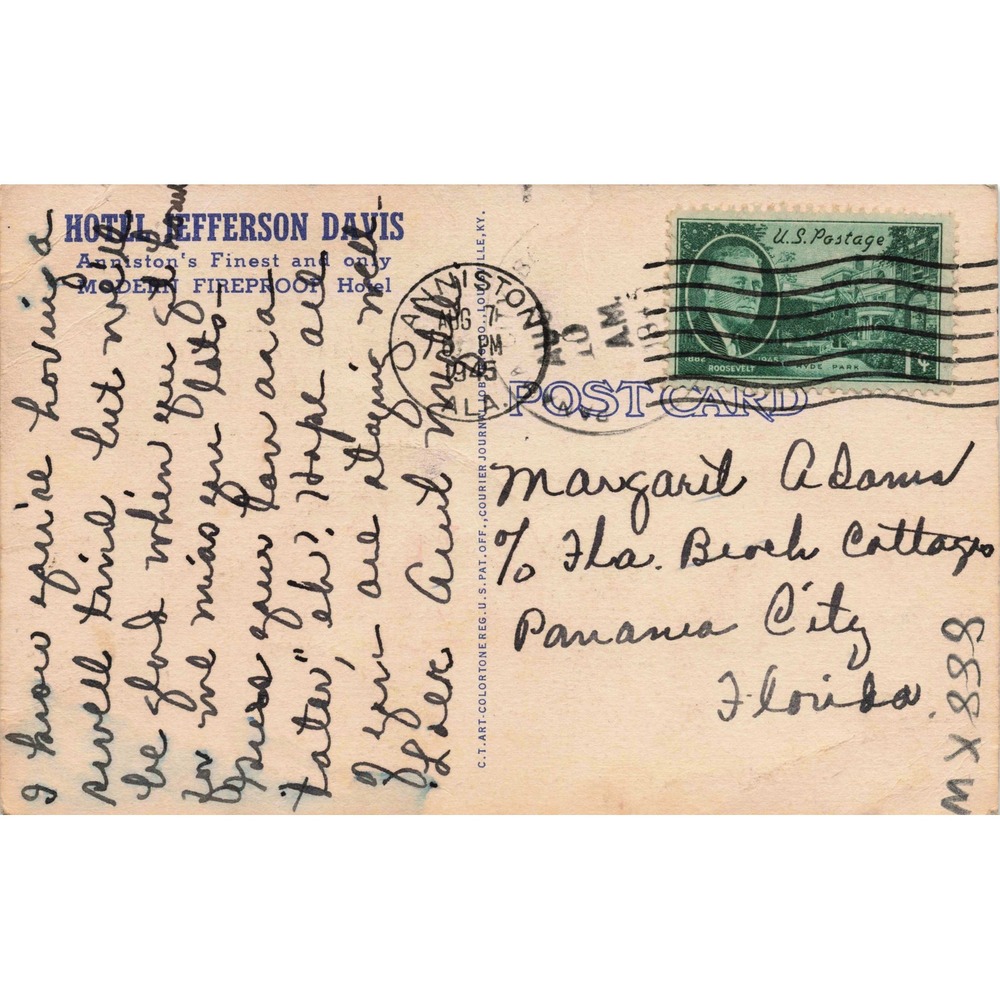 HOTEL JEFFERSON DAVIS
Anniston's Finest and only
MODERN FIREPROOF Hotel
I know you're having a
swell time but will
be glad when you get home
for we miss you lots
your Pa and a
tater" eh? Hope all
of you are staying well
Love Aunt
C.T. ART-COLORTONE REG. U.S. PAT. OFF., COURIER JOURNAL JOB LOUISVILLE, KY.
ANNISTON
AUG 7
PM
1945
ALA.
AUG
10
AM.
1945
U.S. Postage
1882 1945
ROOSEVELT HYDE PARK 1¢
POST CARD
Margaret Adams
c/o Fla. Beach Cottages
Panama City
Florida.
MX 888